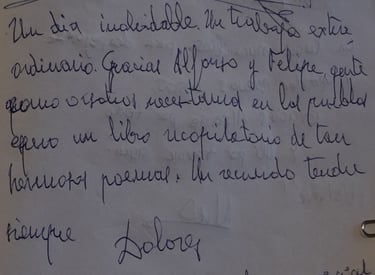 Un dia inolvidable. Un trabajo extra-
ordinario. Gracias Alfonso y Felipe, gente
como vosotros necesitamos en los pueblos
espero un libro recopilatorio de tan
hermosos poemas. Un recuerdo tendre
siempre Dolores